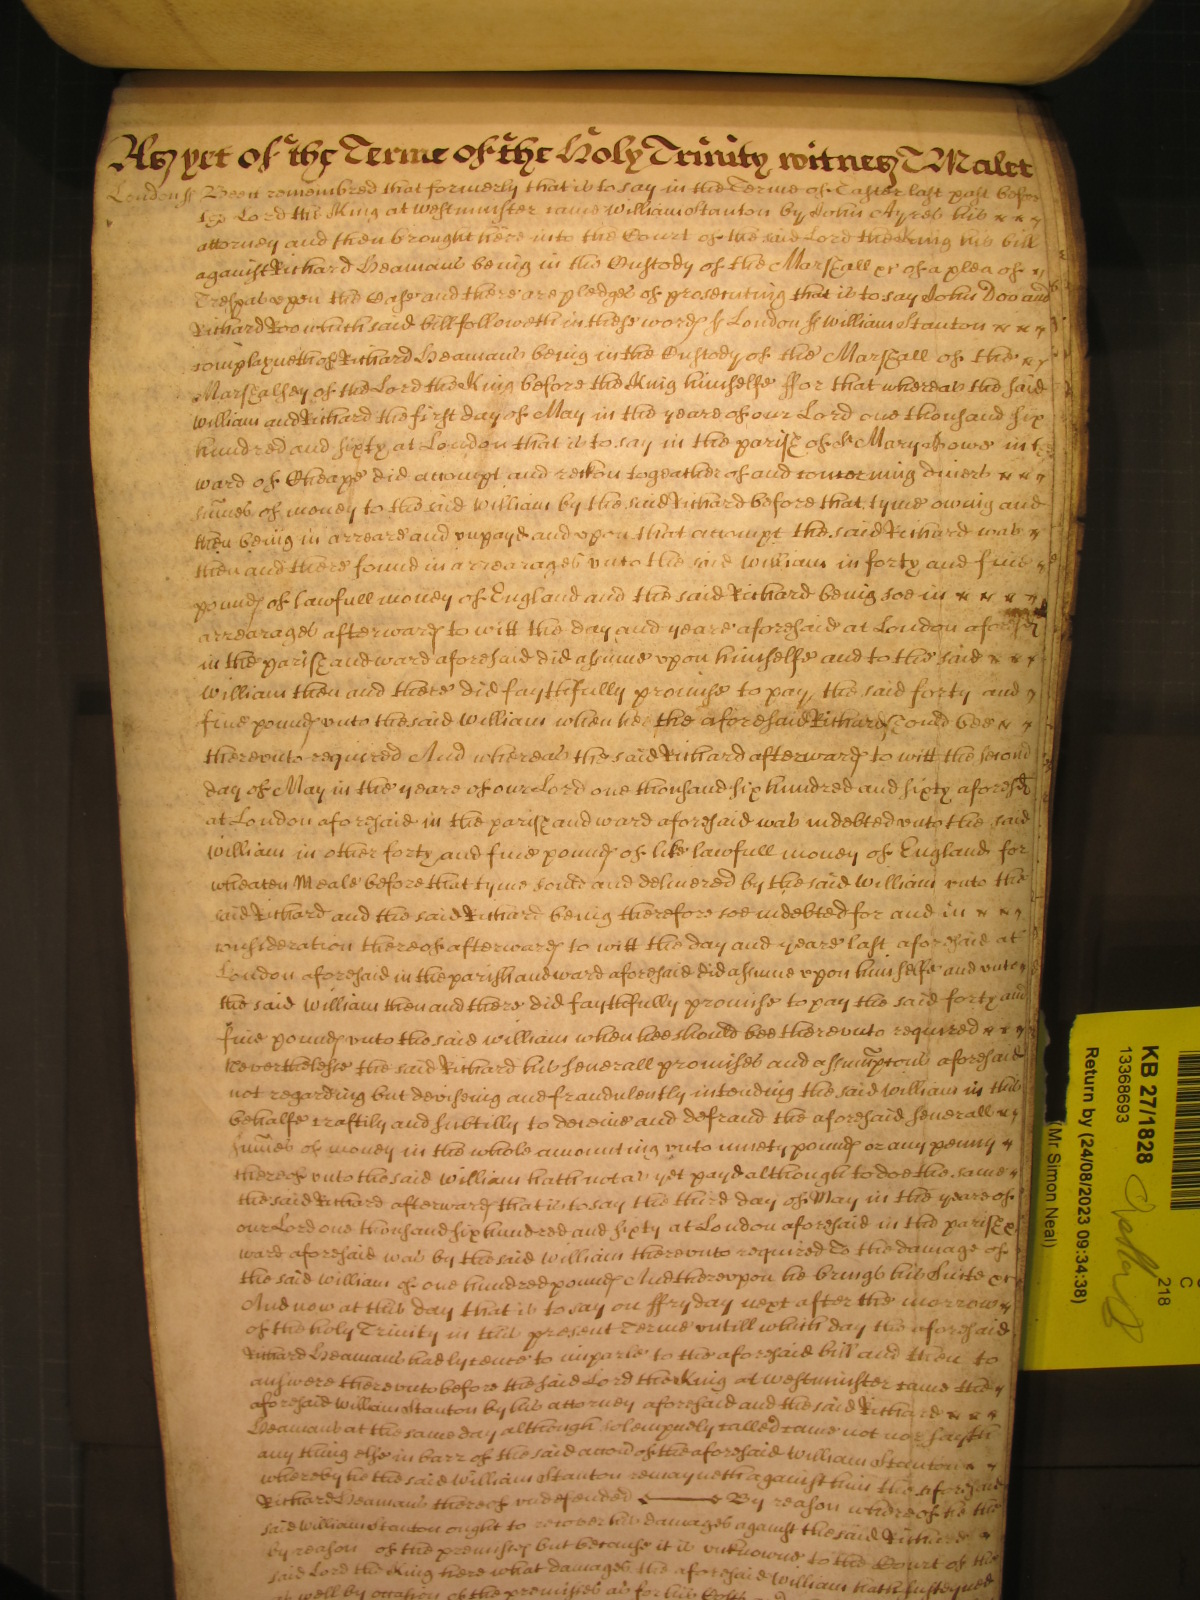 As yet of the Terme of the Holy Trinity witnes T Malet
London ss Been remembred that formerly that is to say in the Terme of Easter last past before
Lord the King at Westminster came William Stanton by John Ayres his
attorney and then brought here into the Court of the said Lord the King his bill
against Richard Heamans being in the Custody of the Marshall &c of a plea of
Trespas upon the Case and there are pledges of prosecuting that is to say John Doo and
Richard Roo which said bill followeth in these words ss London ss William Stanton
complayneth of Richard Heamans being in the Custody of the Marshall of the
Marshalsey of the Lord the King before the King himselfe ffor that whereas the said
William and Richard the first day of May in the yeare of our Lord one thousand six
hundred and sixty at London that is to say in the parish of St Mary Bowe in the
ward of Cheape did accompt and reckon togeather of and concerning divers
sumes of money to the said William by the said Richard before that tyme owing and
then being in arreare and unpayd and upon that accompt the said Richard was
then and there found in arrearages unto the said William in forty and five
pounds of lawfull money of England and the said Richard being soe in
arrearages afterwards to witt the day and yeare aforesaid at London aforesaid
in the parish and ward aforesaid did assume upon himselfe and to the said
William then and there did faythfully promise to pay the said forty and
five pounds unto the said William when he the aforesaid Richard should bee
thereunto required And whereas the said Richard afterwards to witt the second
day of May in the yeare of our Lord one thousand six hundred and sixty aforesd
at London aforesaid in the parish and ward aforesaid was indebted unto the said
William in other forty and five pounds of like lawfull money of England for
wheaten Meale before that tyme sould and delivered by the said William unto the
said Richard and the said Richard being therefore soe indebted for and in
consideration thereof afterwards to witt the day and yeare last aforesaid at
London aforesaid in the parish and ward aforesaid did assume upon himselfe and unto
the said William then and there did faythfully promise to pay the said forty and
five pounds unto the said William when hee should bee thereunto required
Neverthelesse the said Richard his severall promises and assumptions aforesaid
not regarding but deviseing and fraudulently intending the said William in this
behalfe craftily and subtilly to deceive and defraud the aforesaid severall
sumes of money in the whole amounting unto ninety pounds or any penny
thereof unto the said William hath not as yet payd although to doe the same
the said Richard afterwards that is to say the third day of May in the yeare of
our Lord one thousand six hundred and sixty at London aforesaid in the parish &
ward aforesaid was by the said William thereunto required To the damage of
the said William of one hundred pounds And thereupon he brings his Suite &c
And now at this day that is to say on ffryday next after the morrow
of the holy Trinity in this present Terme untill which day the aforesaid
Richard Heamans had lycence to imparle to the aforesaid bill and then to
answere thereunto before the said Lord the King at Westminster came the
aforesaid William Stanton by his attorney aforesaid and the said Richard
Heamans at the same day although solempnely called came not nor sayth
any thing else in barr of the said accon of the aforesaid William Stanton
whereby he the said William Stanton remayneth against him the aforesaid
Richard Heamans thereof undefended By reason whereof he the
said William Stanton ought to recover his damages against the said Richard
by reason of the premisses but because it is unknowne to the Court of the
said Lord the King here what damages the aforesaid William hath susteyned
as well by occasion of the premisses as for his Costs
KB 27/1828
13368693
Return by (24/08/2023 09:34:38)
(Mr Simon Neal)
218
C